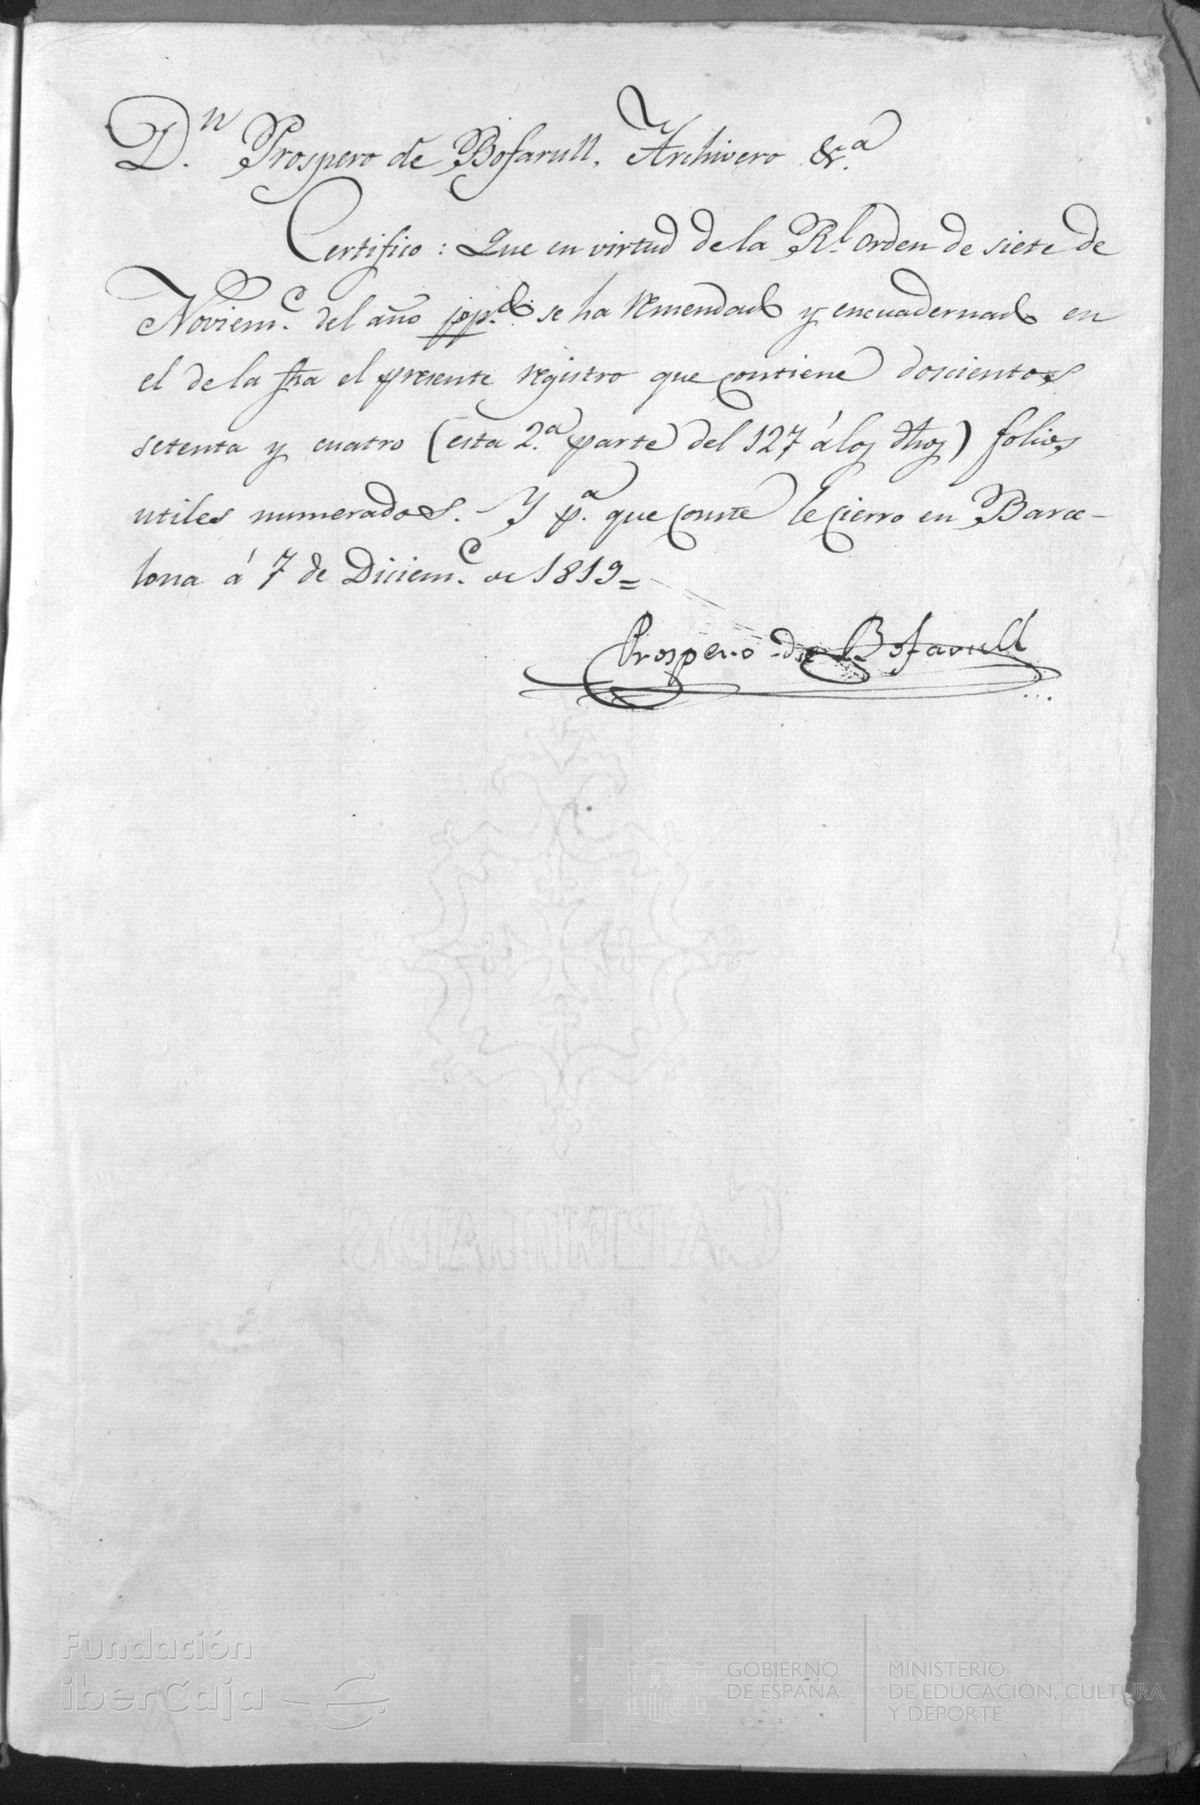 D.n Prospero de Bofarull, Archivero &c.a
Certifico: Que en virtud de la Rl. orden de siete de
Noviem.e del año pp.do se ha remendado y encuadernado en
el de la fha el presente registro que contiene doscientos
setenta y cuatro (esta 2.a parte del 127 á los dhos) folios
utiles numerados. Y p.a que conste le cierro en Barce-
lona á 7 de Diciem.e de 1819=
Prospero de Bofarull
CAPELLADES
Fundación
iberCaja
GOBIERNO
DE ESPAÑA
MINISTERIO
DE EDUCACIÓN, CULTURA
Y DEPORTE